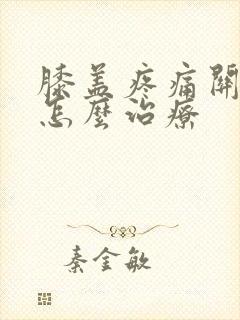 膝盖疼痛關
怎麼治療
秦金敏